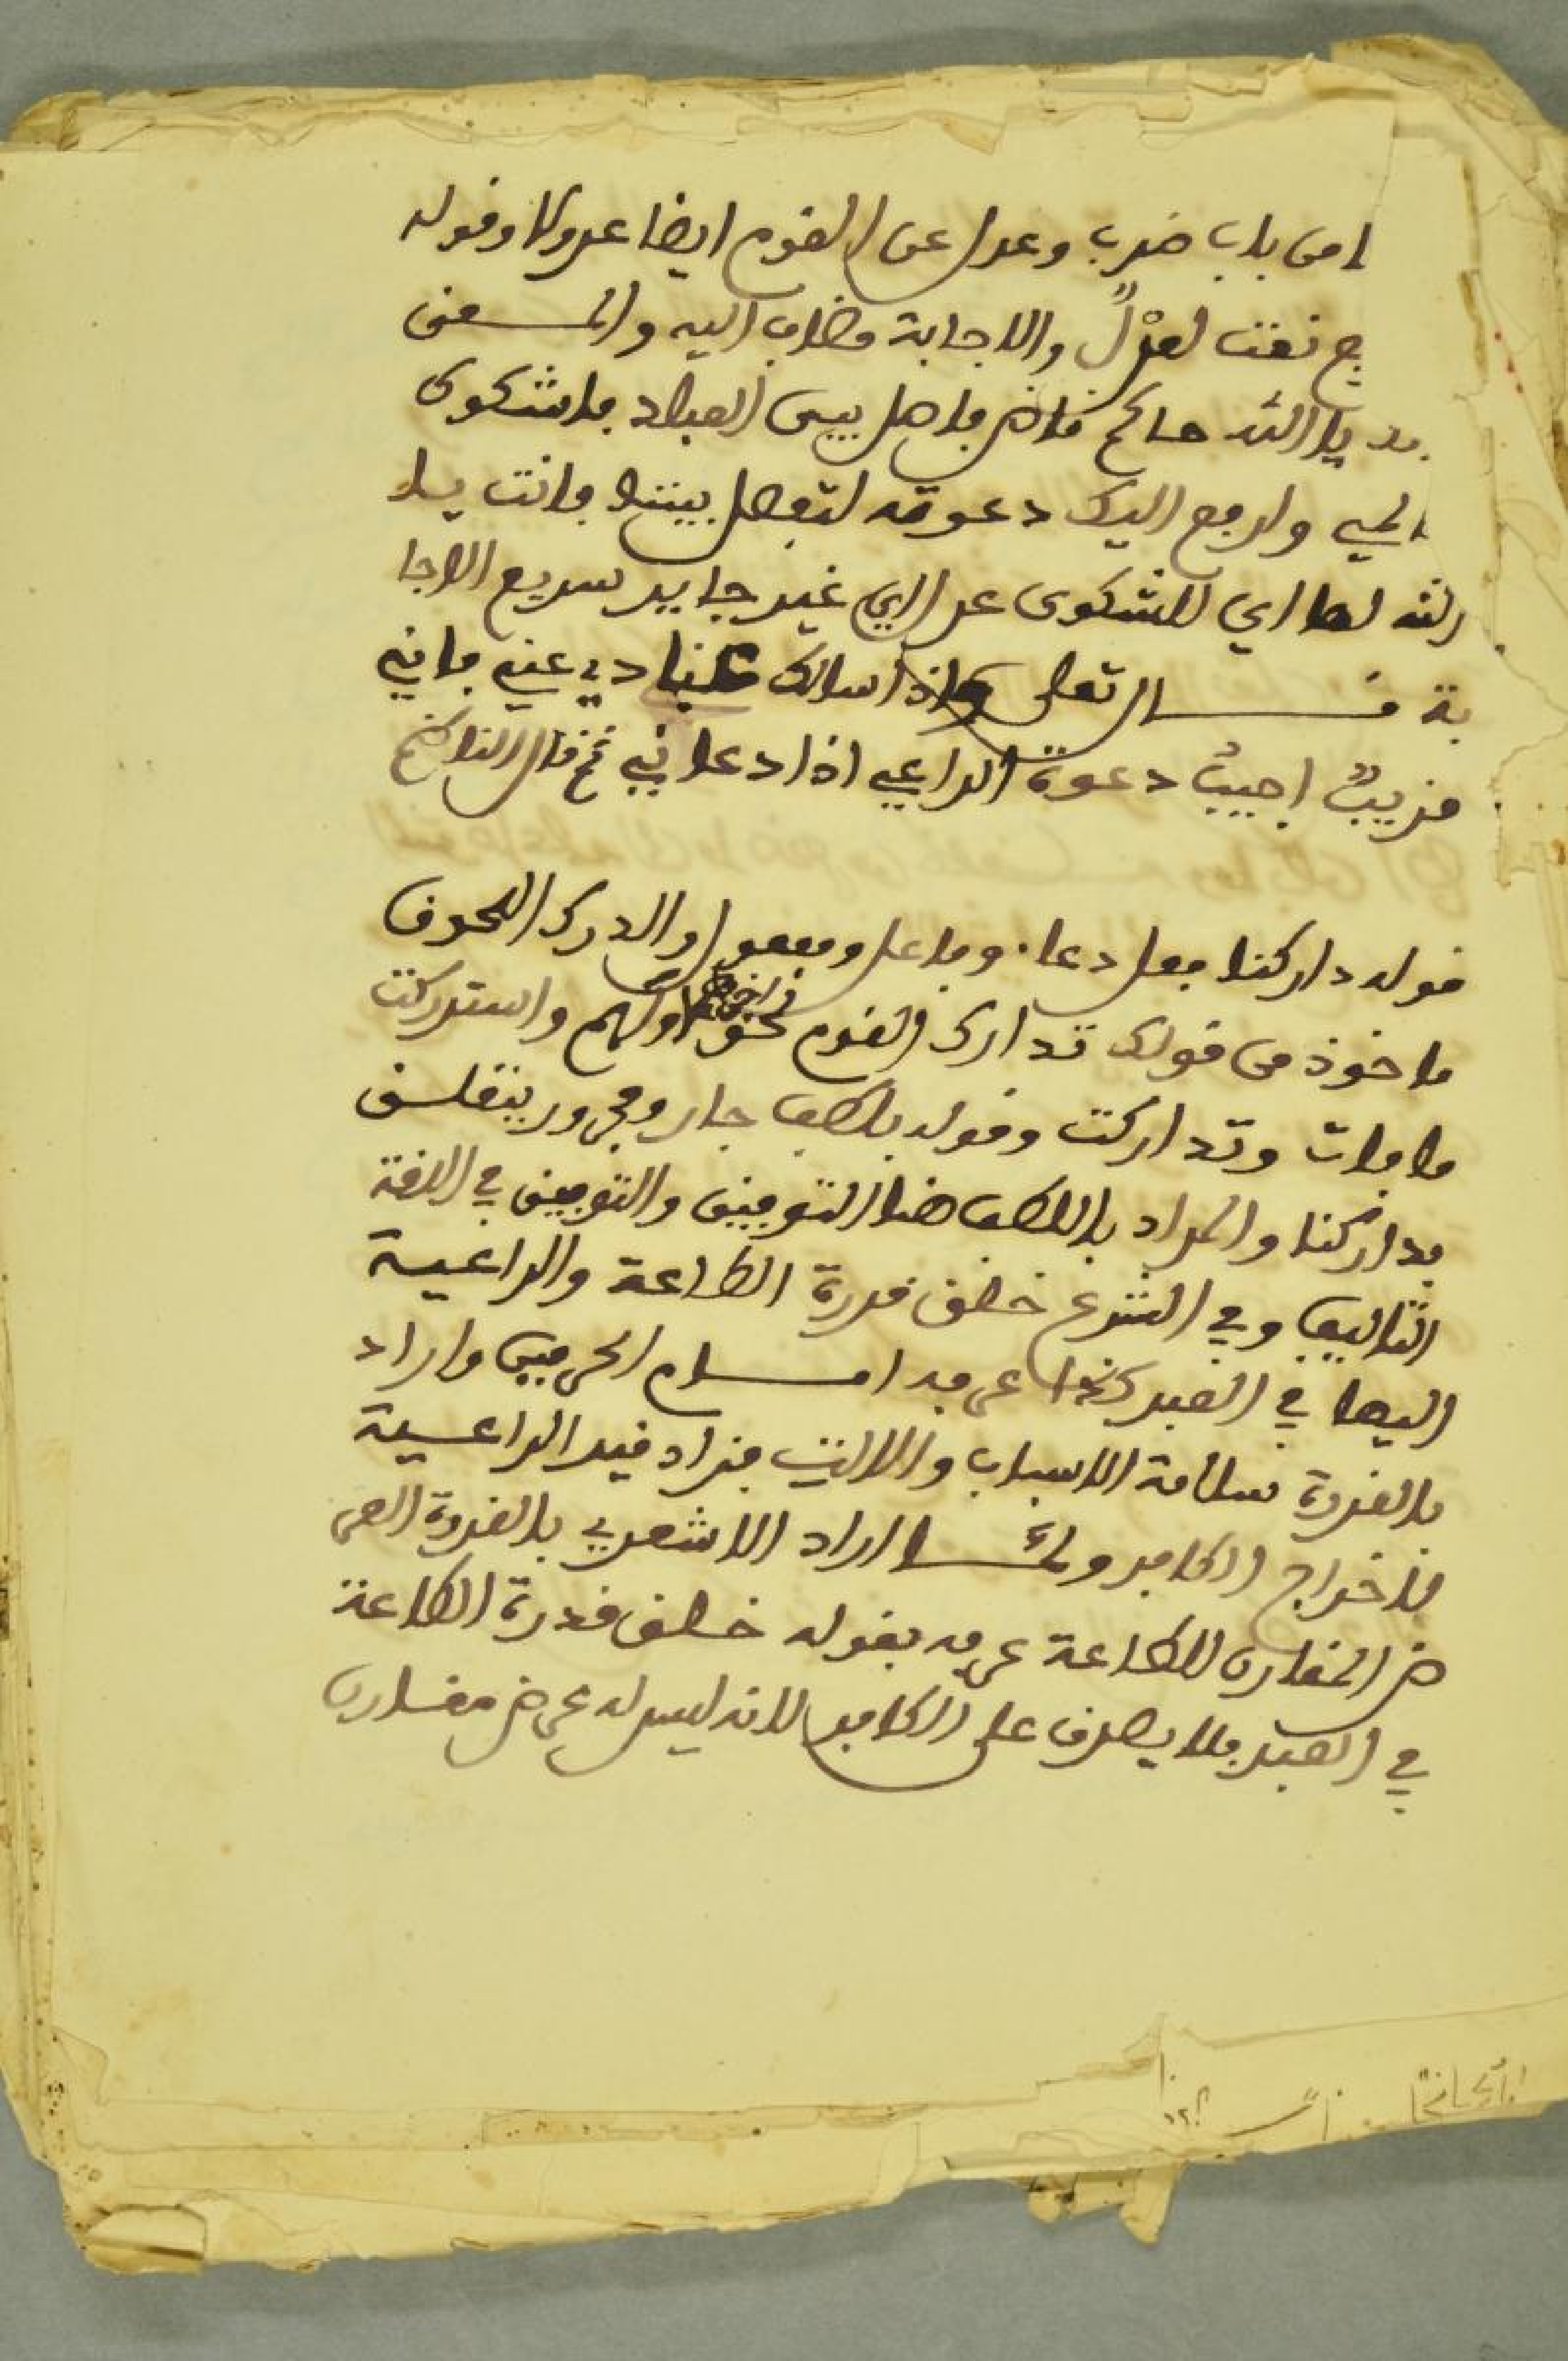 ا من باب ضرب وعدل عن القوم ايضا عدولا وقوله
ج نعت لعدْلٌ والاجابة مضاف اليه والمعنى
يا الله حاكم قاض فاصل بين العباد بالشكوى
الهي وارفع اليك دعوته لتفصل بيننا وانت يا
الله لها اي للشكوى عدل اي غير جاير سريع الاجا
بة قال تعلى واذا سالك عبادي عني فاني
قريبٌ اجيبُ دعوة الداعي اذا دعاني ثم قال الناظم
قوله داركنا فعل دعاء وفاعل ومفعول والدرك اللحوق
ماخوذ من قولك تدارك القوم لحق اخرهم اولهم واستدركت
ما فات وتداركت وقوله بلطف جار ومجرور يتعلق
بداركنا والمراد باللطف هنا التوفيق والتوفيق في اللغة
التاليف وفي الشرع خلق قدرة الطاعة والداعية
اليها في العبد كذا عرفه امام الحرمين واراد
بالقدرة سلامة الاسباب والالات فزاد قيد الداعية
لاخراج الكافر ولما اراد الاشعري بالقدرة العر
ض المقارن للطاعة عرفه بقوله خلق قدرة الطاعة
في العبد فلا يصدق على الكافر لانه ليس له عرض مقارن